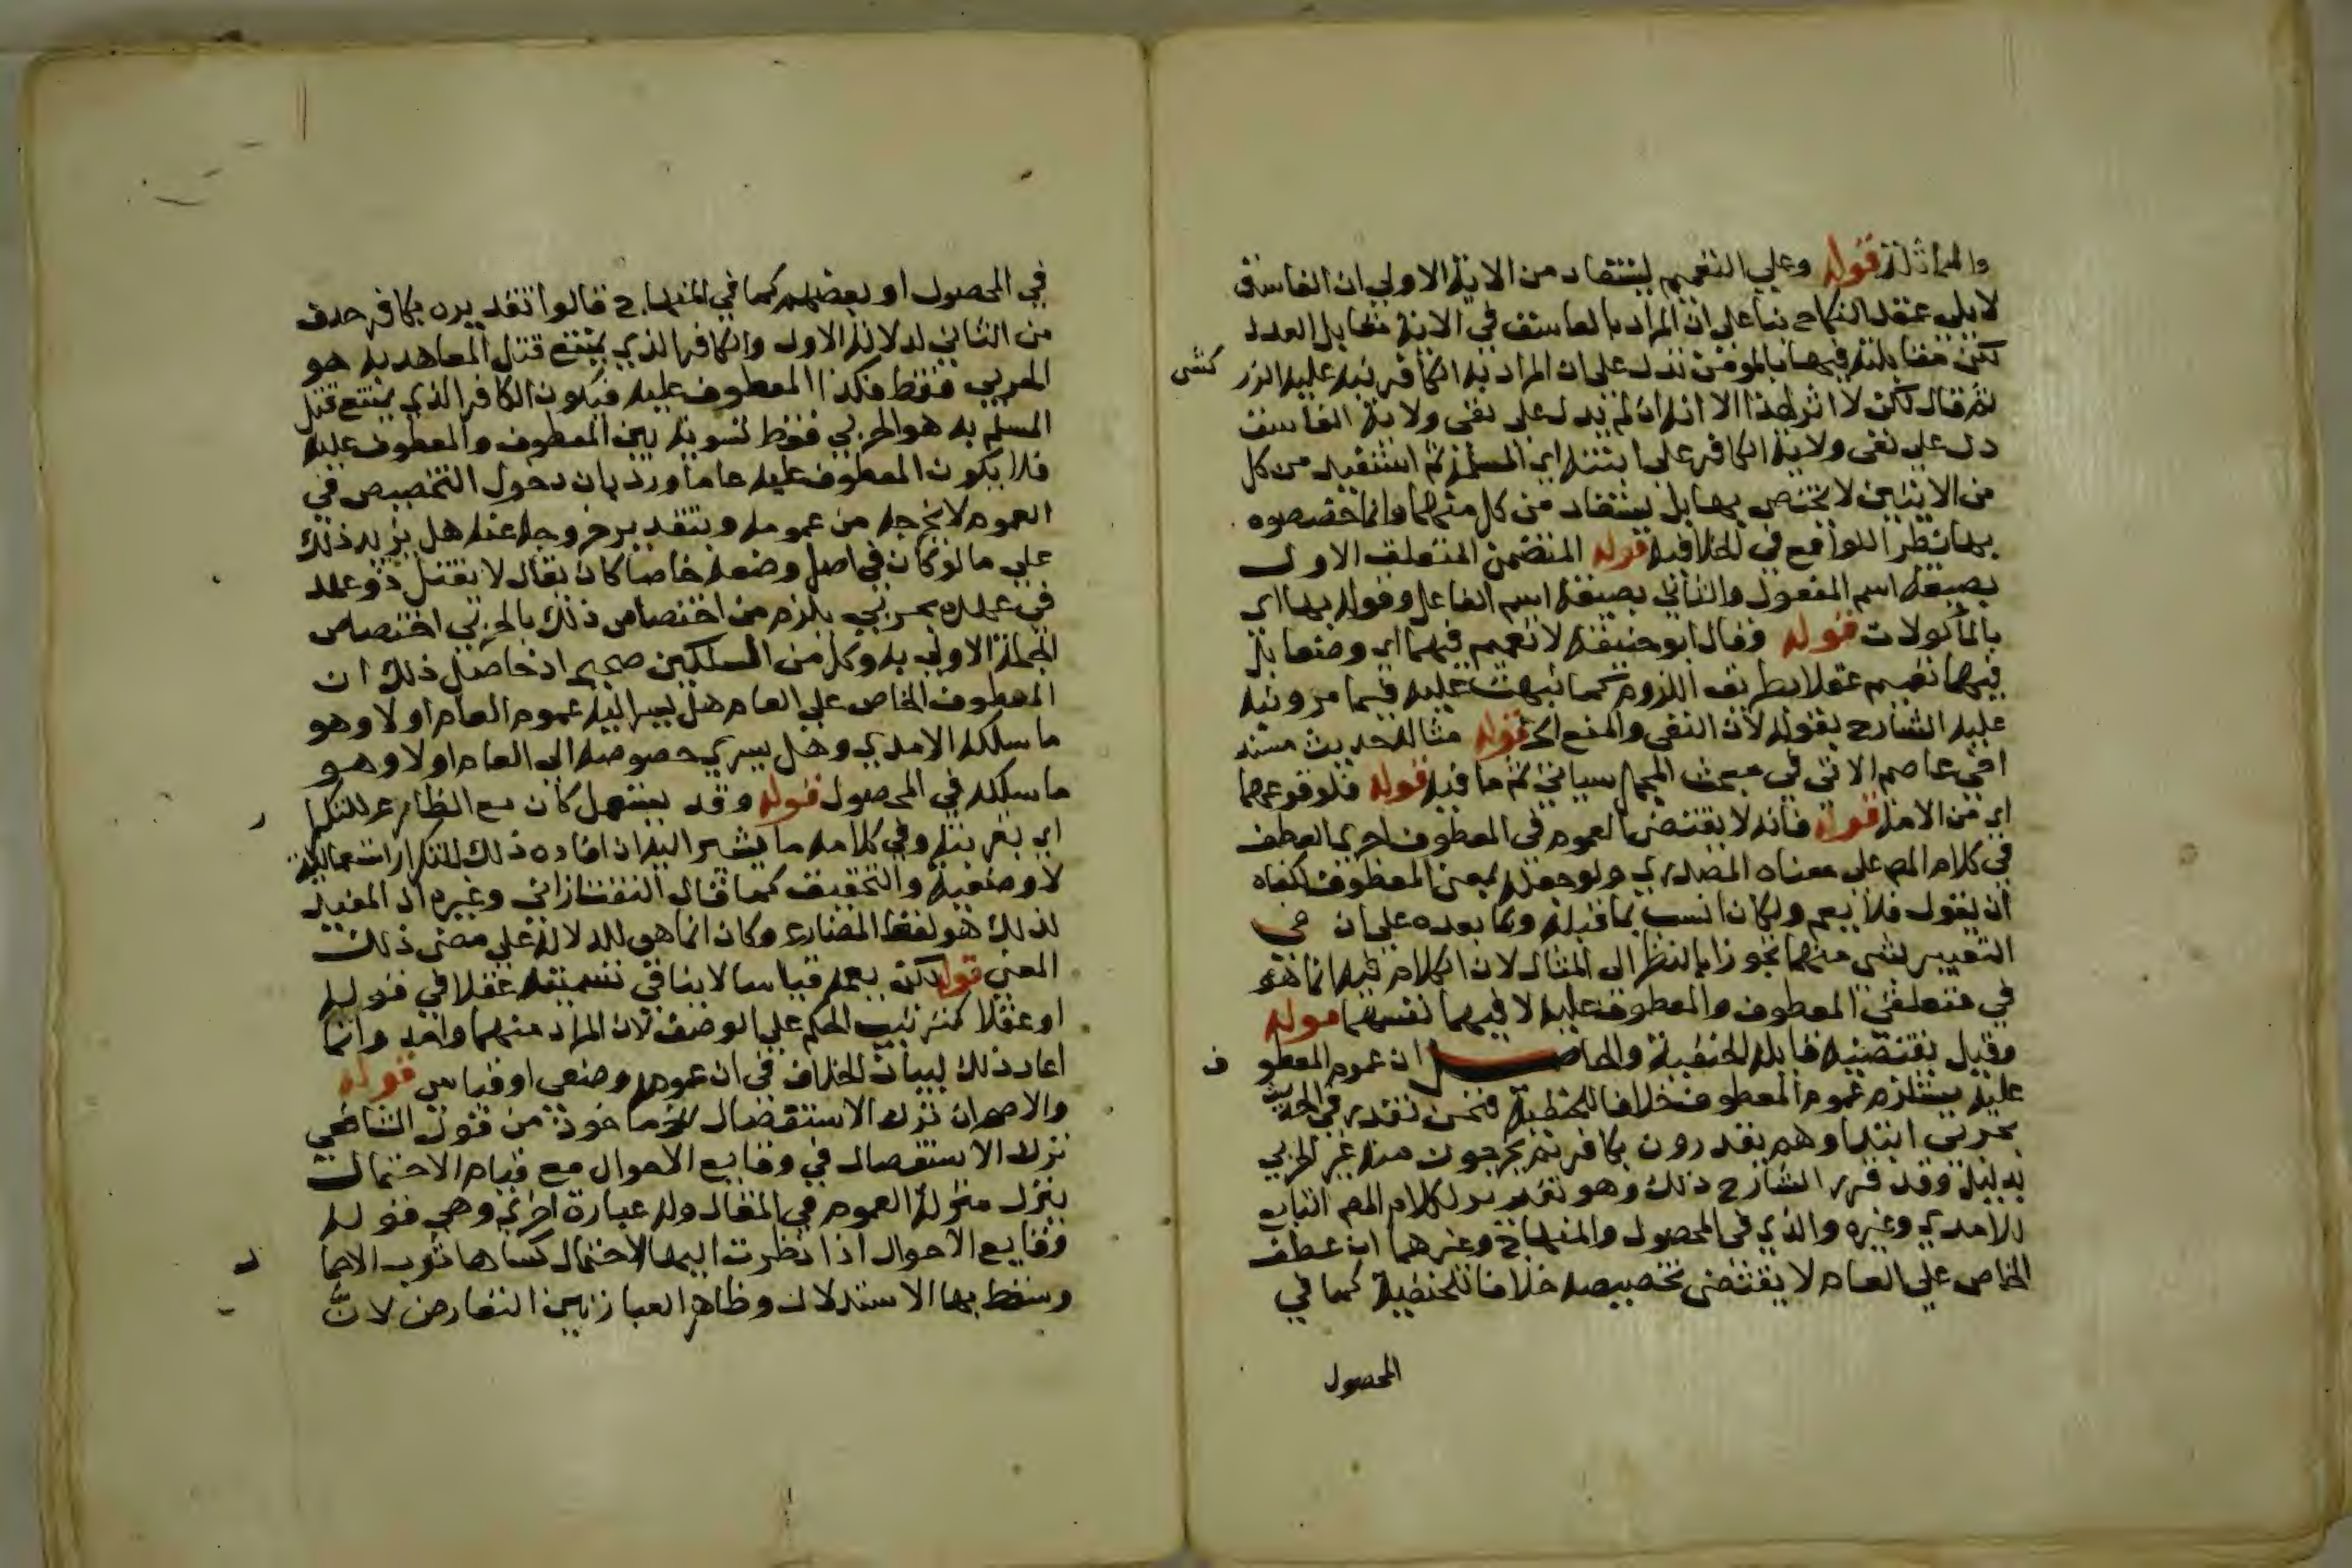 والمماثلة قوله وعلي التعميم يستفاد من الاية الاولي ان الفاسق
لا يلي عقد النكاح بنا علي ان المراد بالفاسق في الاية مقابل العدل
لكن مقابلته فيها بالمومن تدل علي ان المراد به الكافر نبه عليه الزر كشي
ثم قال لكن لا اثر لهذا الا انه ان لم يدل علي نفي ولاية الفاسق
دل علي نفي ولاية الكافر علي ابنته اي المسلمة ثم استفيد من كل
من الايتين لا يختص بها بل يستفاد من كل منهما وانما خصصوه
بها نظرا للواقع في الخلافية قوله المتضمن المتعلق الاول
بصيغة اسم المفعول والثاني بصيغة اسم الفاعل وقوله بها اي
بالمأكولات قوله وقال ابو حنيفة لا تعميم فيهما اي وضعا بل
فيهما تعميم عقلا بطريق اللزوم كما نبهت عليه فيما مر ونبه
عليه الشارح بقوله لان النفي والمنع الخ قوله مثاله حديث مسند
افي عاصم الاتي في مبحث المجمل سياتي ثم ما فيه قوله فلوقوعهما
اي من الامة قوله فانه لا يقتضي العموم في المعطوف اجري العطف
في كلام المص علي معناه المصدري ولو جعله بمعني المعطوف لكفاه
ان يقول فلا يعم ولكان انسب بما قبله وبما بعده علي ان في
التعبير بشي منهما تجوزا بالنظر الي المثال لان الكلام فيه انما هو
في متعلقي المعطوف والمعطوف عليه لا فيهما نفسهما قوله
وقيل يقتضيه قايله الحنفية والحاصل ان عموم المعطوف
عليه يستلزم عموم المعطوف خلافا للحنفية فنحن نقدر في الحديث
بحربي ابتدا وهم يقدرون بكافر ثم يخرجون منه غير الحربي
بدليل وقد قرر الشارح ذلك وهو تقرير لكلام المص التابع
للامدي وغيره والذي في المحصول والمنهاج وغيرهما ان عطف
الخاص علي العام لا يقتضي تخصيصه خلافا للحنفية كما في
المحصول
في المحصول او بعضهم كما في المنهاج قالوا تقديره بكافر حذف
من الثاني لدلالة الاول والكافر الذي يمتنع قتل المعاهد به هو
الحربي فقط فكذا المعطوف عليه فيكون الكافر الذي يمتنع قتل
المسلم به هو الحربي فقط تسوية بين المعطوف والمعطوف عليه
فلا يكون المعطوف عليه عاما ورد بان دخول التخصيص في
العموم لا يخرجه من عمومه وبتقدير خروجه عنه هل يزيد ذلك
علي ما لو كان في اصل وضعه خاصا كان يقال لا يقتل ذو عهد
في عهده بحربي يلزم من اختصاص ذلك بالحربي اختصاص
الجملة الاولي به وكل من المسلكين صحيح اذ حاصل ذلك ان
المعطوف الخاص علي العام هل يسري اليه عموم العام اولا وهو
ما سلكه الامدي وهل يسري خصوصه الي العام اولا وهو
ما سلكه في المحصول قوله وقد يستعمل كان مع المضارع للتكرا ر
اي بقرينة وفي كلامه ما يشير اليه ان افاده ذلك للتكرارات عمالية
لا وضعية والتحقيق كما قال التفتازاني وغيره ان المفيد
لذلك هو لفظ المضارع وكان انما هو للدلالة علي مضي ذلك
المعني قوله لكن يعمه قياسا لا ينافي تسميته عقلا في قوله
او عقلا كترتيب الحكم علي الوصف لان المراد منهما واحد وانما
اعاد ذلك لبيان الخلاف في ان عمومه وضعي او قياس قوله
والاصح ان ترك الاستفصال الخ ماخوذ من قول الشافعي
ترك الاستفصال في وقايع الاحوال مع قيام الاحتمال
ينزل منزلة العموم في المقال وله عبارة اخري وهي قوله
وقايع الاحوال اذا تطرق اليها الاحتمال كساها ثوب الاجما ل
وسقط بها الاستدلال وظاهر العبارتين التعارض لانّ